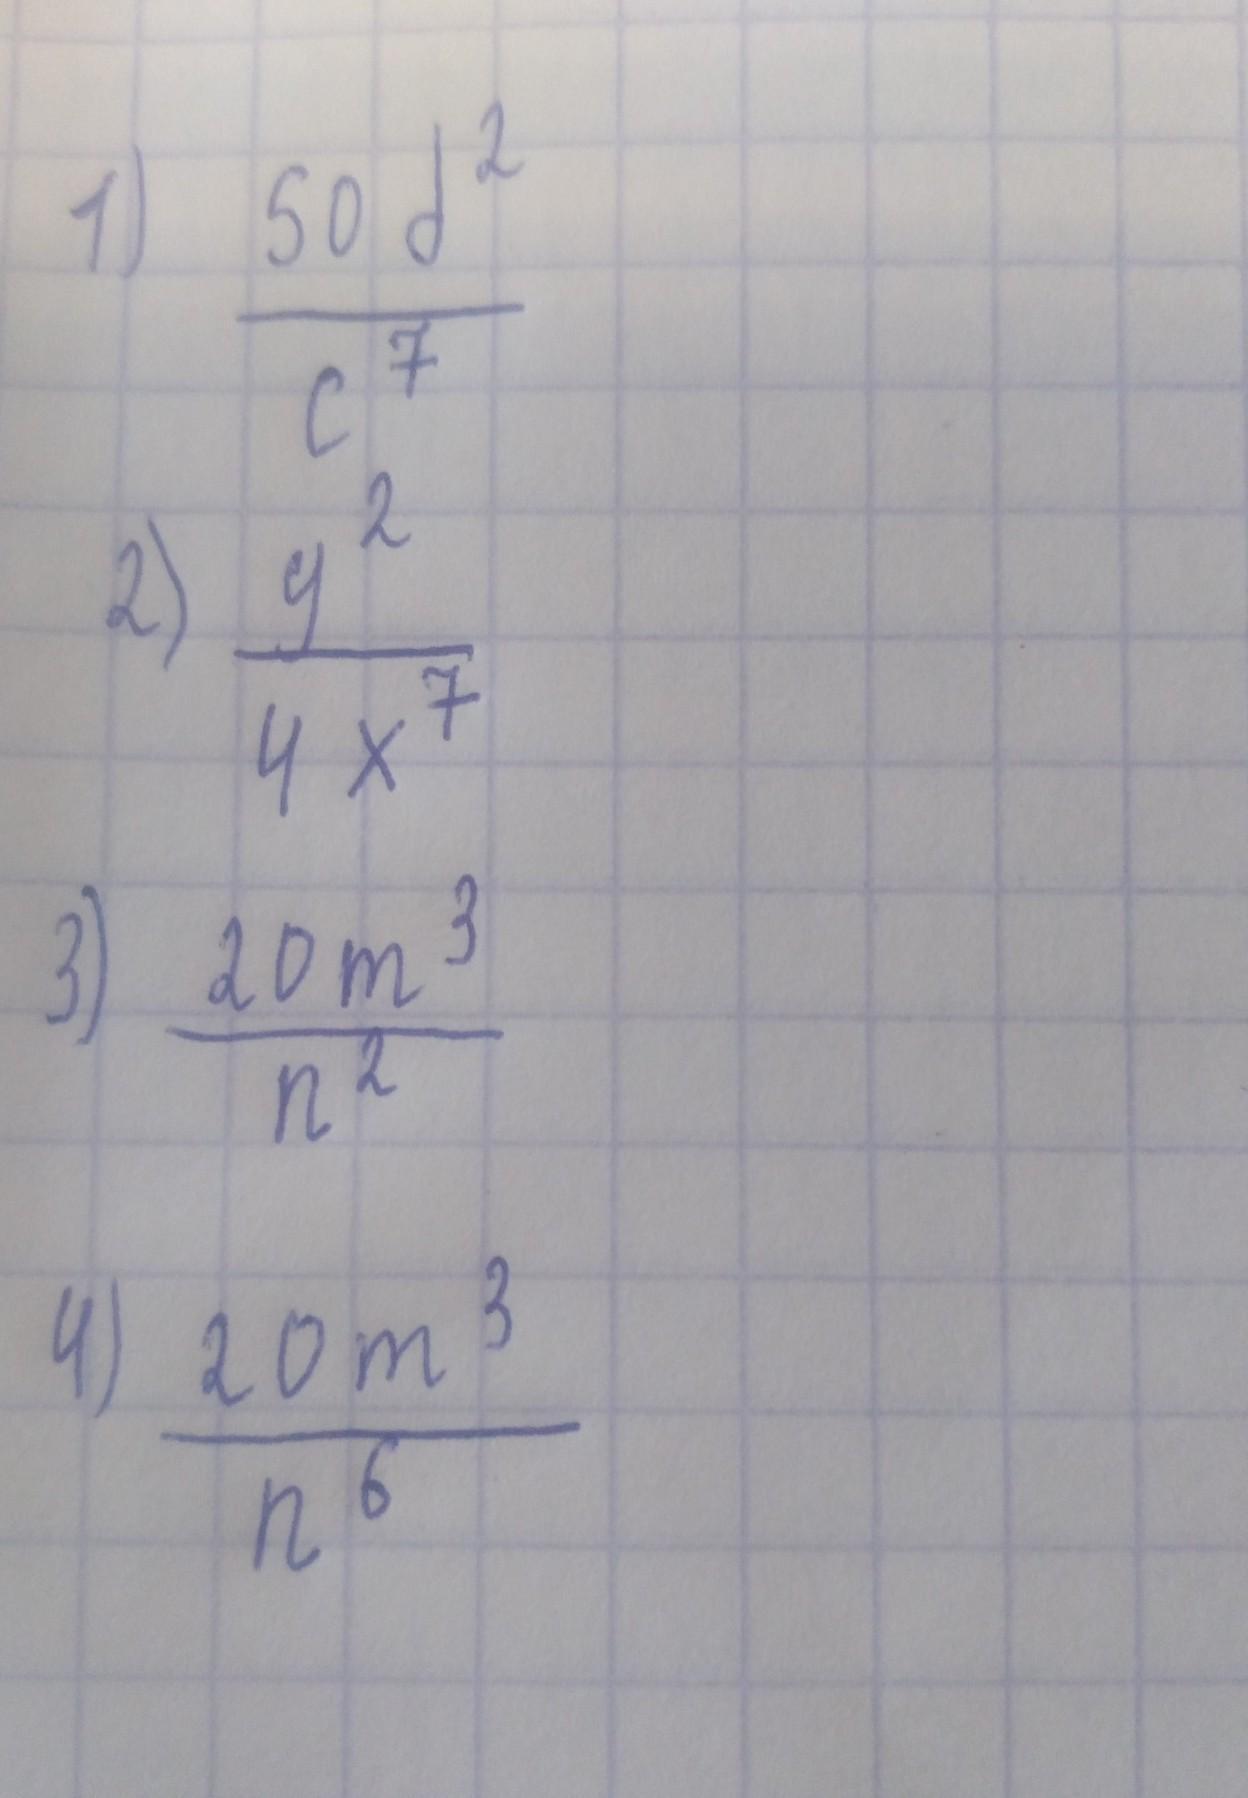 1) 50 d²
c⁷
2) y²
4 x⁷
3) 20 m³
n²
4) 20 m³
n⁶